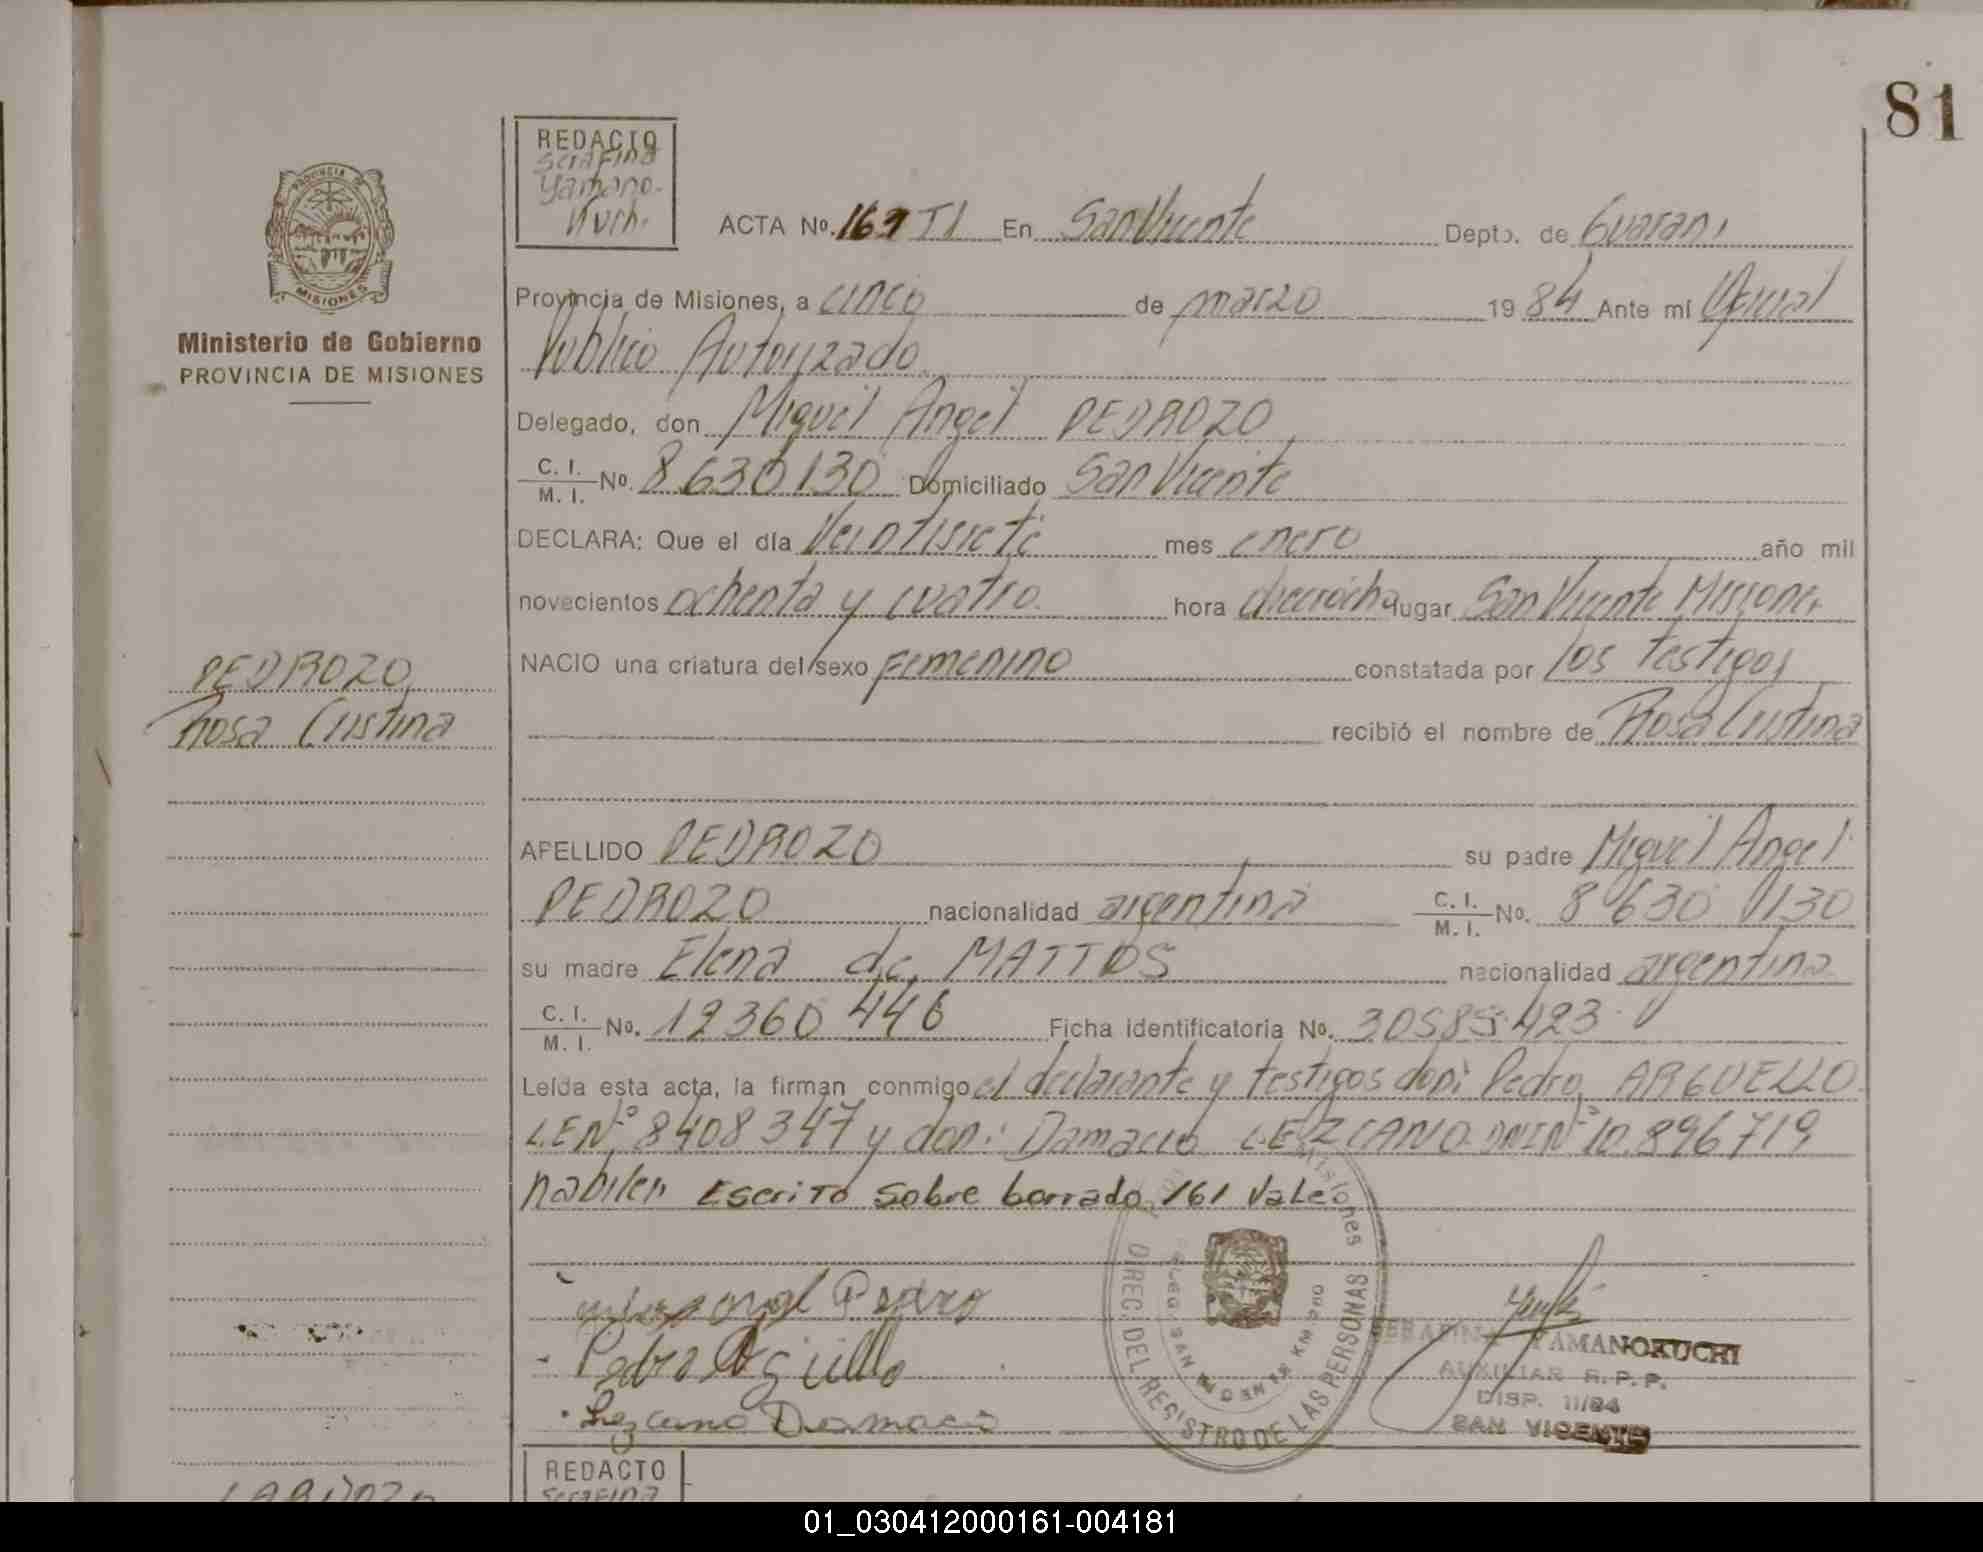 81
REDACTO
Serafina
Yamano-
Kuchi
ACTA No. 161 TI En San Vicente Depto. de Guarani
PROVINCIA DE
MISIONES
Ministerio de Gobierno
PROVINCIA DE MISIONES
Provincia de Misiones, a cinco de marzo 1984 Ante mi Oficial
Publico Autorizado
Delegado, don Miguel Angel PEDROZO
C. I. / M. I. No. 8.630130 Domiciliado San Vicente
DECLARA: Que el día Veintisiete mes enero año mil
novecientos ochenta y cuatro hora dieciocho lugar San Vicente Misiones
NACIO una criatura del sexo Femenino constatada por los testigos
recibió el nombre de Rosa Cristina
PEDROZO
Rosa Cristina
APELLIDO PEDROZO su padre Miguel Angel
PEDROZO nacionalidad argentina C. I. / M. I. No. 8 630 130
su madre Elena de MATTOS nacionalidad argentina
C. I. / M. I. No. 12360 446 Ficha identificatoria No. 30585423
Leída esta acta, la firman conmigo el declarante y testigos don: Pedro ARGUELLO
L.E Nº 8408347 y don: Damacio LEZCANO DNI Nº 10.896719
habiles Escrito sobre borrado 161 Vale
Pedro
Pedro
Lezcano Damacio
DIREC. DEL REGISTRO DE LAS PERSONAS
Misiones
SERAFINA YAMANOKUCHI
AUXILIAR R.P.P.
DISP. 11/84
SAN VICENTE
REDACTO
Serafina
01_030412000161-004181